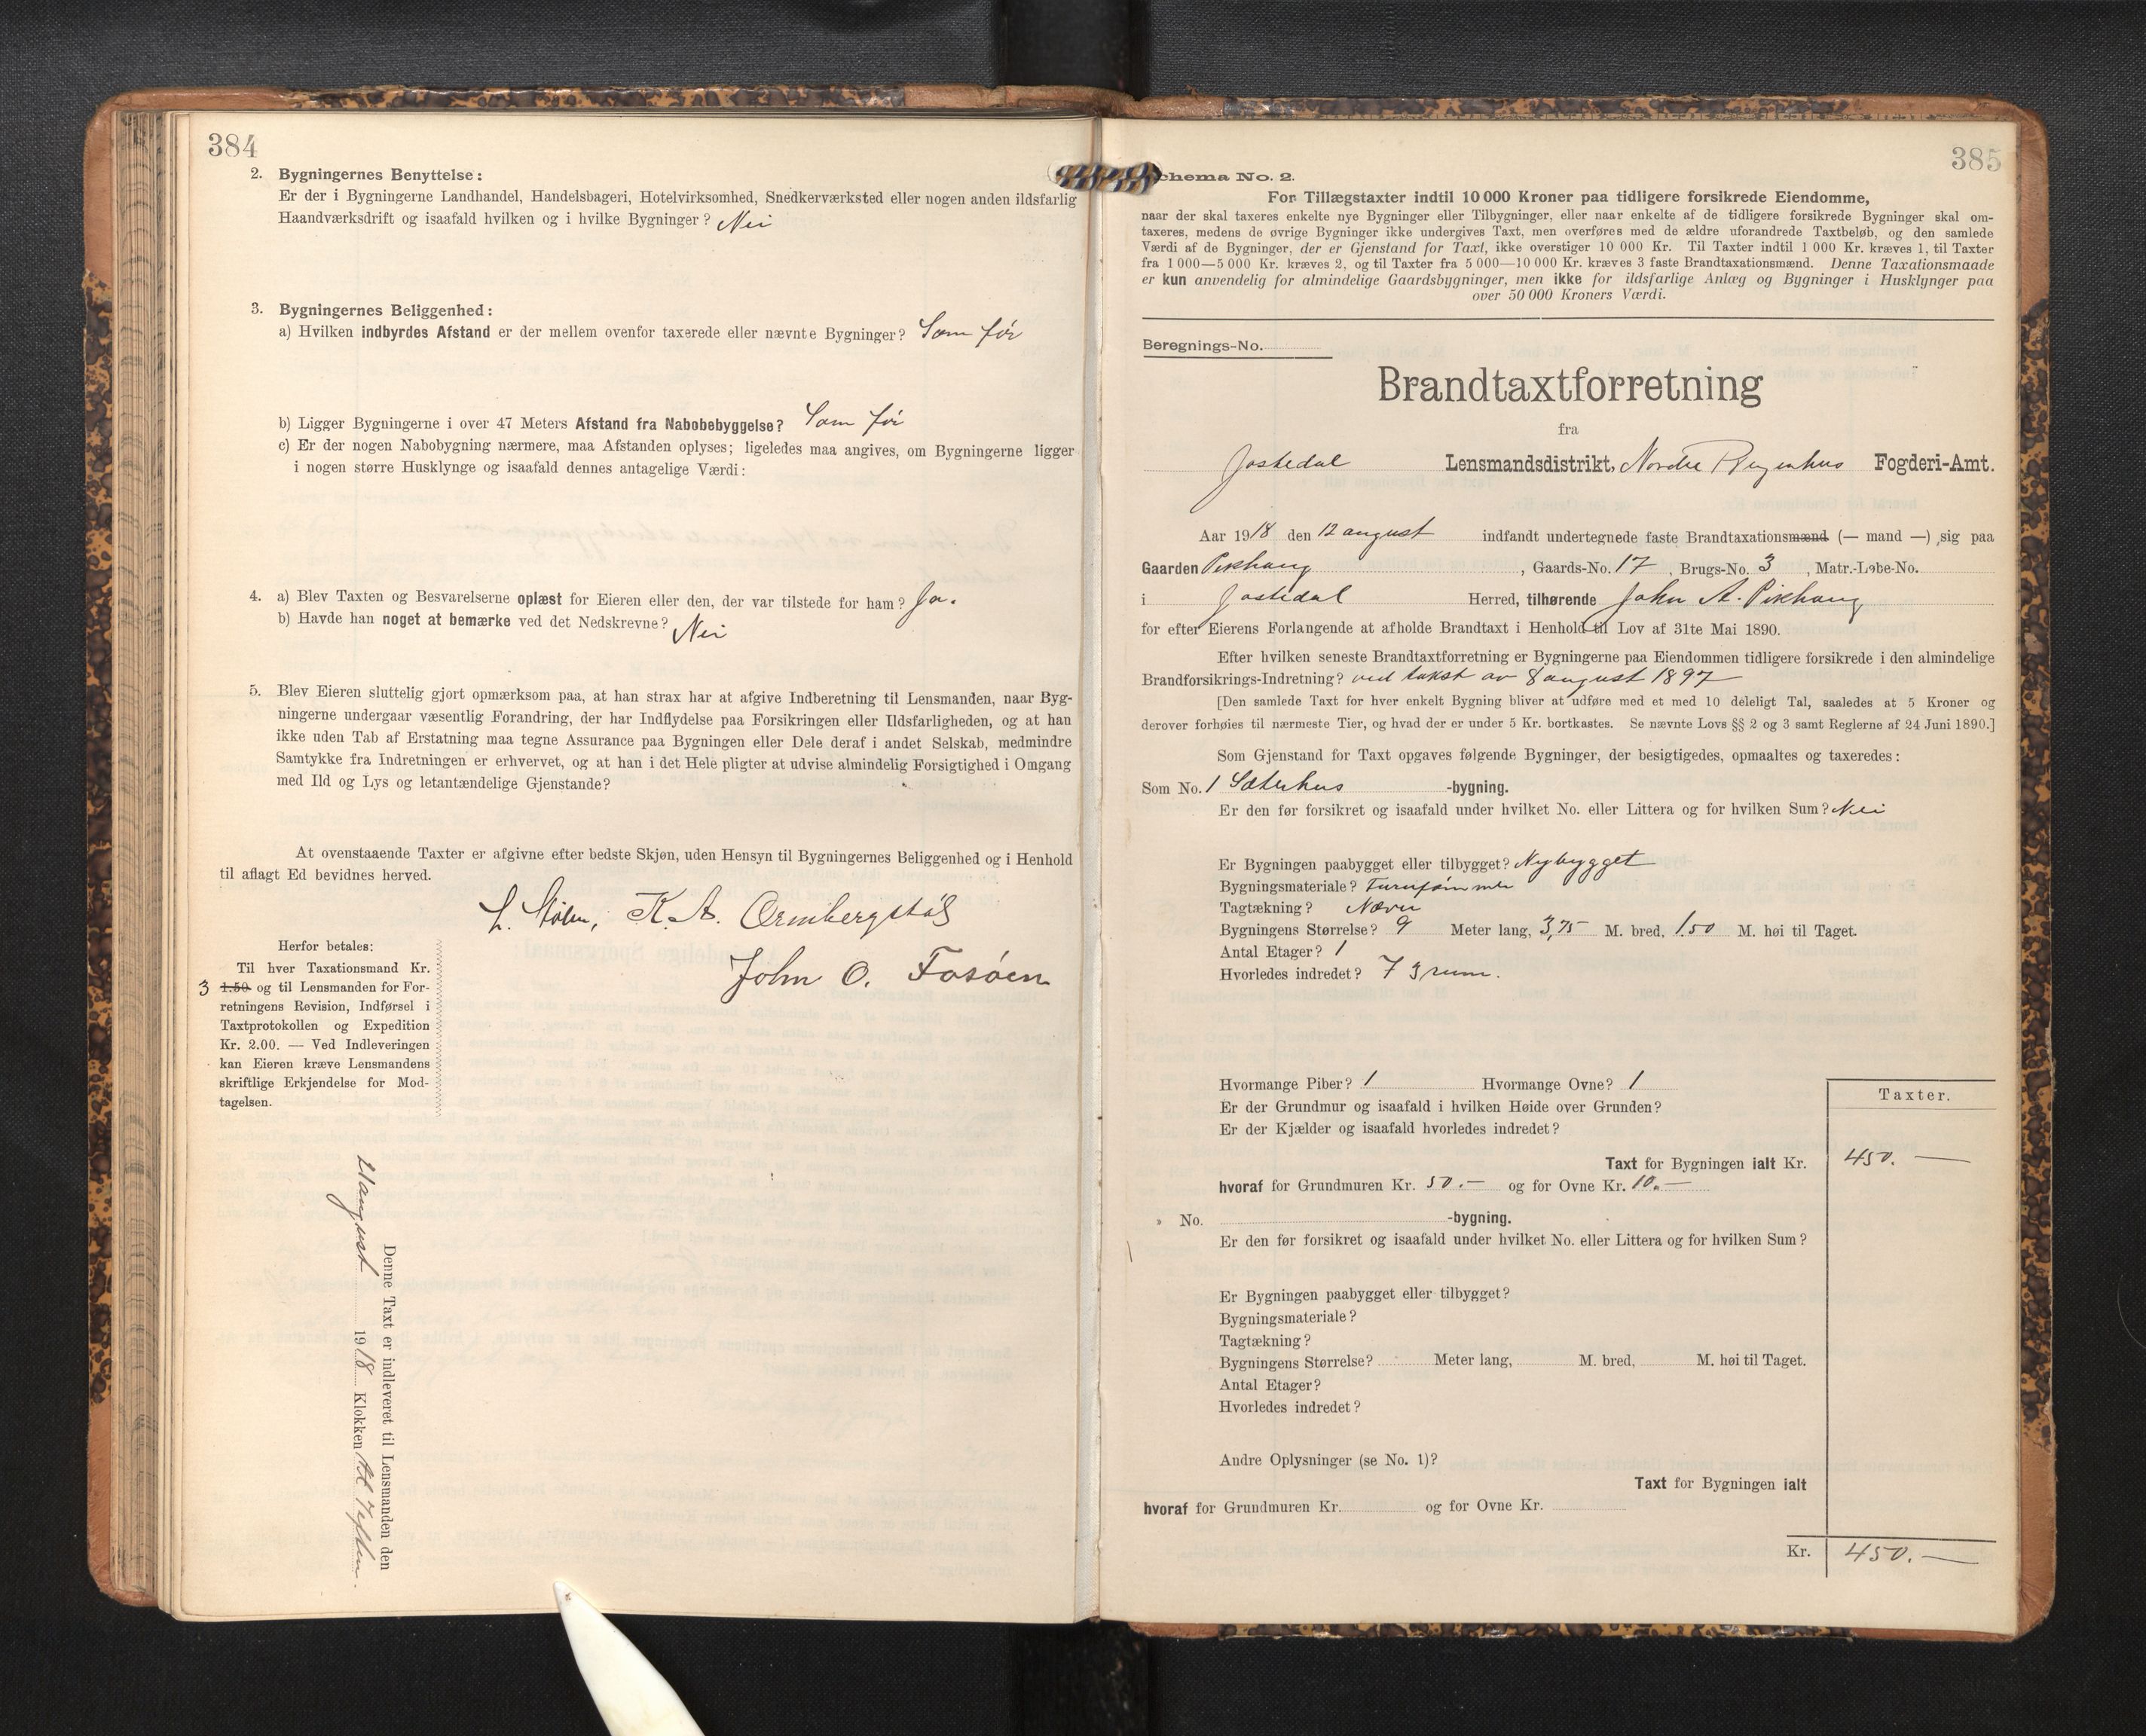 384
2. Bygningernes Benyttelse:
Er der i Bygningerne Landhandel, Handelsbageri, Hotelvirksomhed, Snedkerværksted eller nogen anden ildsfarlig
Haandværksdrift og isaafald hvilken og i hvilke Bygninger? Nei
3. Bygningernes Beliggenhed:
a) Hvilken indbyrdes Afstand er der mellem ovenfor taxerede eller nævnte Bygninger? Som før
b) Ligger Bygningerne i over 47 Meters Afstand fra Nabobebyggelse? Som før
c) Er der nogen Nabobygning nærmere, maa Afstanden oplyses; ligeledes maa angives, om Bygningerne ligger
i nogen større Husklynge og isaafald dennes antagelige Værdi:
4. a) Blev Taxten og Besvarelserne oplæst for Eieren eller den, der var tilstede for ham? Ja.
b) Havde han noget at bemærke ved det Nedskrevne? Nei
5. Blev Eieren sluttelig gjort opmærksom paa, at han strax har at afgive Indberetning til Lensmanden, naar Byg-
ningerne undergaar væsentlig Forandring, der har Indflydelse paa Forsikringen eller Ildsfarligheden, og at han
ikke uden Tab af Erstatning maa tegne Assurance paa Bygningen eller Dele deraf i andet Selskab, medmindre
Samtykke fra Indretningen er erhvervet, og at han i det Hele pligter at udvise almindelig Forsigtighed i Omgang
med Ild og Lys og letantændelige Gjenstande?
At ovenstaaende Taxter er afgivne efter bedste Skjøn, uden Hensyn til Bygningernes Beliggenhed og i Henhold
til aflagt Ed bevidnes herved.
K. A. Ormbergstøl
John O. Fosøen
Herfor betales:
Til hver Taxationsmand Kr.
3 1.50 og til Lensmanden for For-
retningens Revision, Indførsel i
Taxtprotokollen og Expedition
Kr. 2.00. — Ved Indleveringen
kan Eieren kræve Lensmandens
skriftlige Erkjendelse for Mod-
tagelsen.
Denne Taxt er indleveret til Lensmanden den
21 august 1918 Klokken
385
Schema No. 2.
For Tillægstaxter indtil 10 000 Kroner paa tidligere forsikrede Eiendomme,
naar der skal taxeres enkelte nye Bygninger eller Tilbygninger, eller naar enkelte af de tidligere forsikrede Bygninger skal om-
taxeres, medens de øvrige Bygninger ikke undergives Taxt, men overføres med de ældre uforandrede Taxtbeløb, og den samlede
Værdi af de Bygninger, der er Gjenstand for Taxt, ikke overstiger 10 000 Kr. Til Taxter indtil 1 000 Kr. kræves 1, til Taxter
fra 1 000—5 000 Kr. kræves 2, og til Taxter fra 5 000—10 000 Kr. kræves 3 faste Brandtaxationsmænd. Denne Taxationsmaade
er kun anvendelig for almindelige Gaardsbygninger, men ikke for ildsfarlige Anlæg og Bygninger i Husklynger paa
over 50 000 Kroners Værdi.
Beregnings-No.
Brandtaxtforretning
fra
Jostedal Lensmandsdistrikt, Nordre Bergenhus Fogderi-Amt.
Aar 1918 den 12 august indfandt undertegnede faste Brandtaxationsmænd (— mand —) sig paa
Gaarden Pikhaug, Gaards-No. 17, Brugs-No. 3, Matr.-Løbe-No.
i Jostedal Herred, tilhørende John A. Pikhaug
for efter Eierens Forlangende at afholde Brandtaxt i Henhold til Lov af 31te Mai 1890.
Efter hvilken seneste Brandtaxtforretning er Bygningerne paa Eiendommen tidligere forsikrede i den almindelige
Brandforsikrings-Indretning? ved takst av 8 august 1897
[Den samlede Taxt for hver enkelt Bygning bliver at udføre med et med 10 deleligt Tal, saaledes at 5 Kroner og
derover forhøies til nærmeste Tier, og hvad der er under 5 Kr. bortkastes. Se nævnte Lovs §§ 2 og 3 samt Reglerne af 24 Juni 1890.]
Som Gjenstand for Taxt opgaves følgende Bygninger, der besigtigedes, opmaaltes og taxeredes:
Som No. 1 Sæterhus -bygning.
Er den før forsikret og isaafald under hvilket No. eller Littera og for hvilken Sum? Nei
Er Bygningen paabygget eller tilbygget? Nybygget
Bygningsmateriale? Furutømmer
Tagtækning? Næver
Bygningens Størrelse? 9 Meter lang, 3,75 M. bred, 1.50 M. høi til Taget.
Antal Etager? 1
Hvorledes indredet? 3 rum.
Hvormange Piber? 1 Hvormange Ovne? 1
Er der Grundmur og isaafald i hvilken Høide over Grunden?
Er der Kjælder og isaafald hvorledes indredet?
Taxter.
Taxt for Bygningen ialt Kr. 450. —
hvoraf for Grundmuren Kr. 50. — og for Ovne Kr. 10. —
" No. -bygning.
Er den før forsikret og isaafald under hvilket No. eller Littera og for hvilken Sum?
Er Bygningen paabygget eller tilbygget?
Bygningsmateriale?
Tagtækning?
Bygningens Størrelse? Meter lang, M. bred, M. høi til Taget.
Antal Etager?
Hvorledes indredet?
Andre Oplysninger (se No. 1)?
Taxt for Bygningen ialt
hvoraf for Grundmuren Kr. og for Ovne Kr.
Kr. 450. —